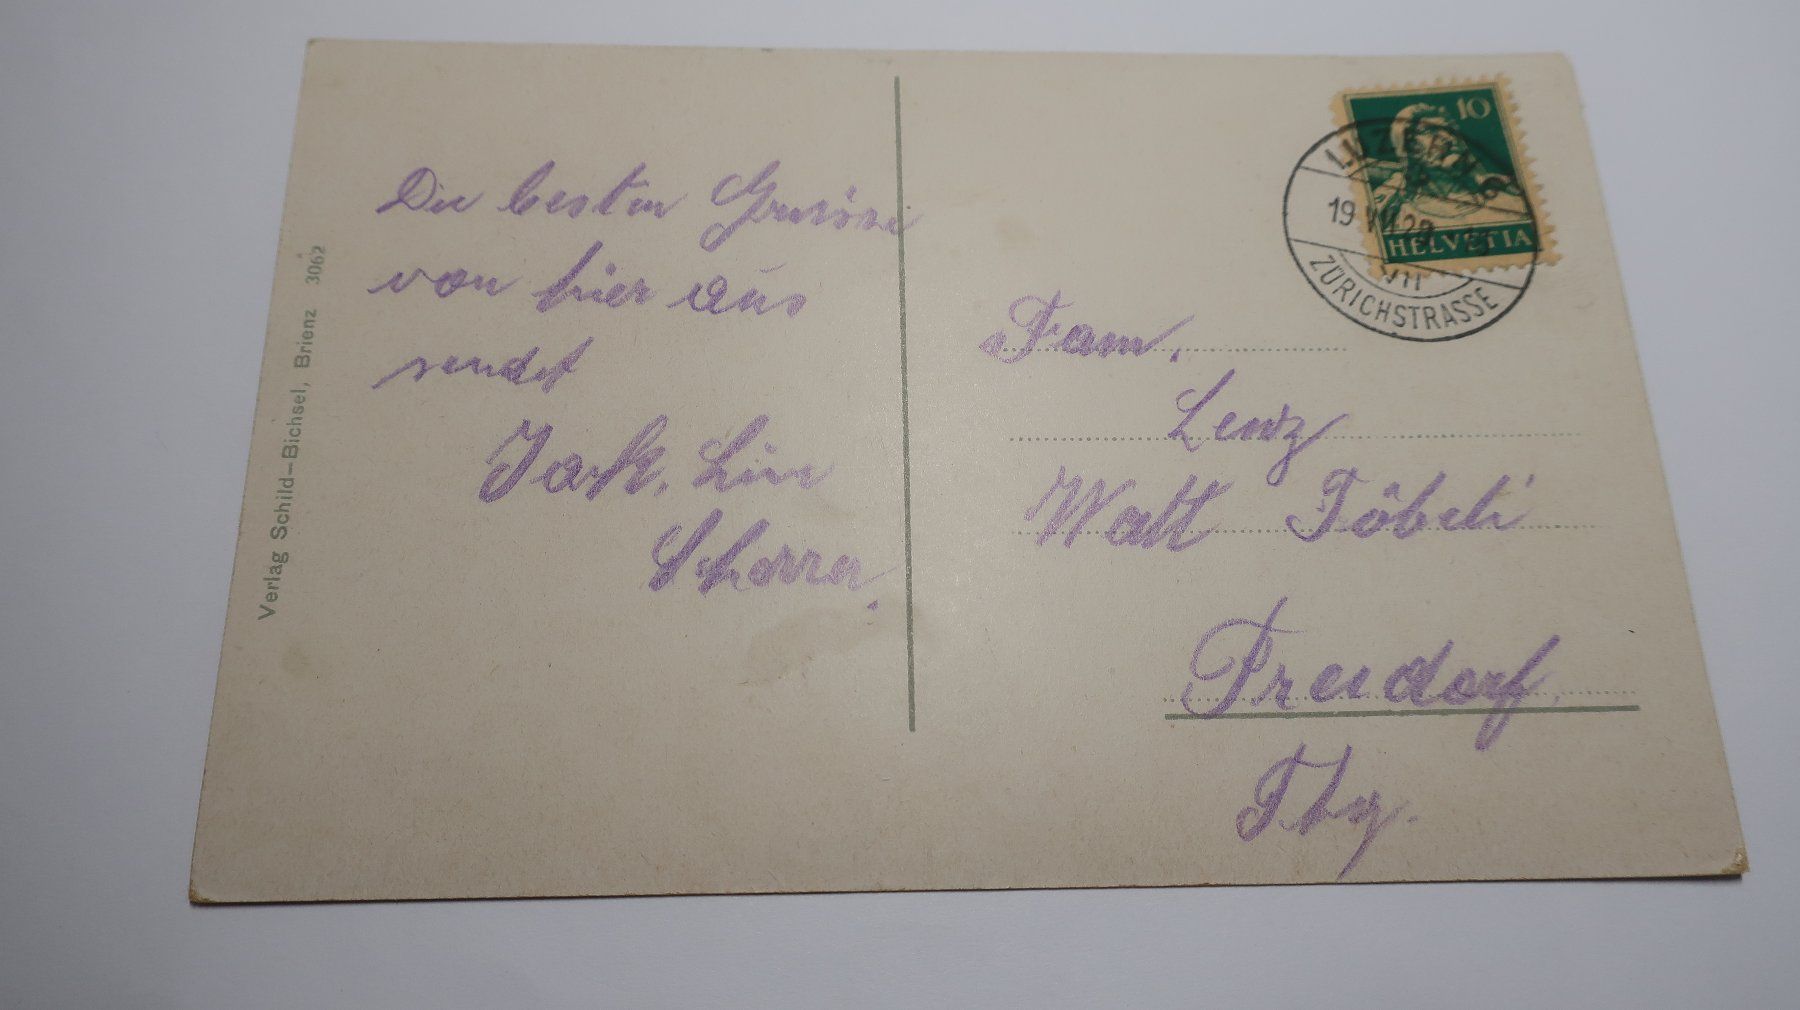 Die besten Grüsse
von hier aus
sendet
Jak.
Schorrer.
Verlag Schild-Bichsel, Brienz 3062
10
HELVETIA
LUZERN
19.VII.29
VII
ZÜRICHSTRASSE
Fam.
Lenz
Watt Töbeli
Freidorf
Thg.